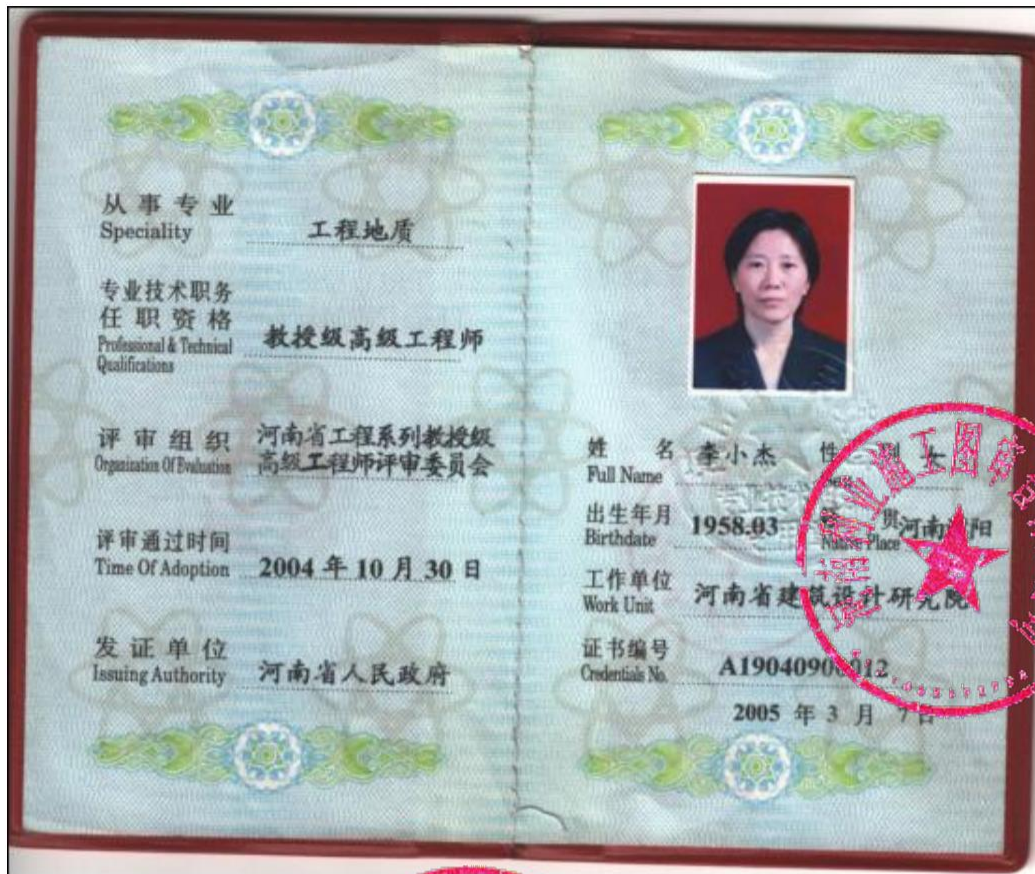 从事专业
Speciality
工程地质
专业技术职务
任职资格
Professional & Technical
Qualifications
教授级高级工程师
评审组织
Organization Of Evaluation
河南省工程系列教授级
高级工程师评审委员会
评审通过时间
Time Of Adoption
2004 年 10 月 30 日
发证单位
Issuing Authority
河南省人民政府
姓 名 李小杰 性 别 女
Full Name
出生年月 1958.03 贯 河南
Birthdate Native Place
工作单位
Work Unit
河南省建筑设计研究院
证书编号
Credentials No.
2005 年 3 月 7 日
施工图审